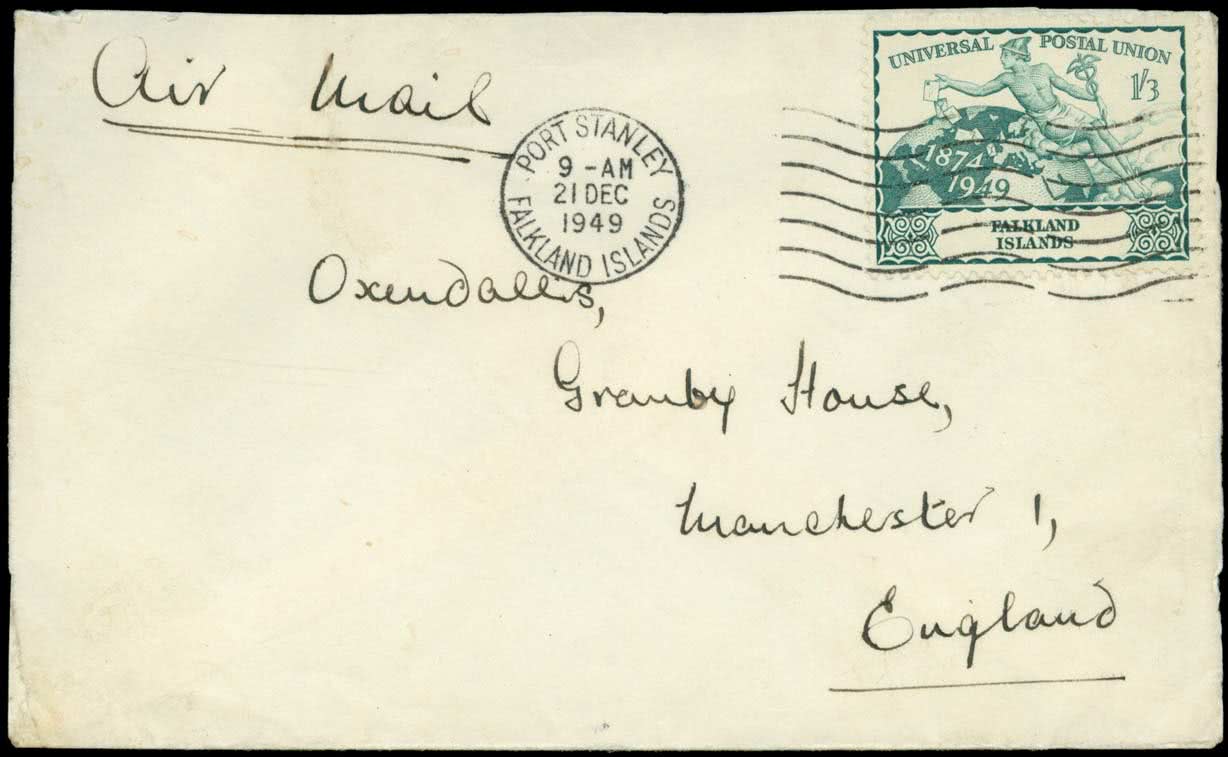 Air Mail
UNIVERSAL POSTAL UNION
1/3
1874
1949
FALKLAND
ISLANDS
PORT STANLEY
9 - AM
21 DEC
1949
FALKLAND ISLANDS
Oxendales,
Granby House,
Manchester 1,
England